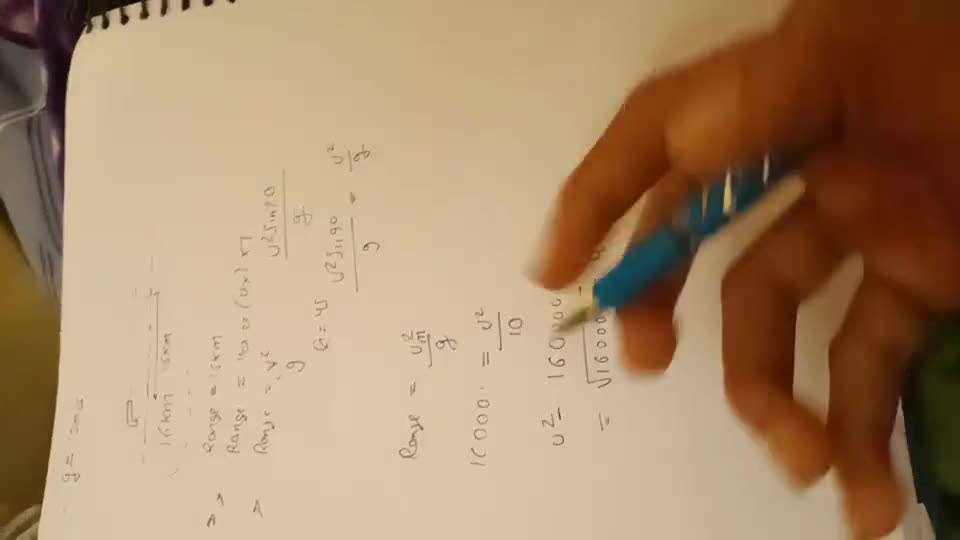 g = 10m/s
16km 15km
Range = 16km
Range = (ux) x T
Range = u²/g
u²sin2θ/g
θ = 45
u²sin90/g = u²/g
Range = u²m/g
16000 = u²/10
u² = 160000
= √16000